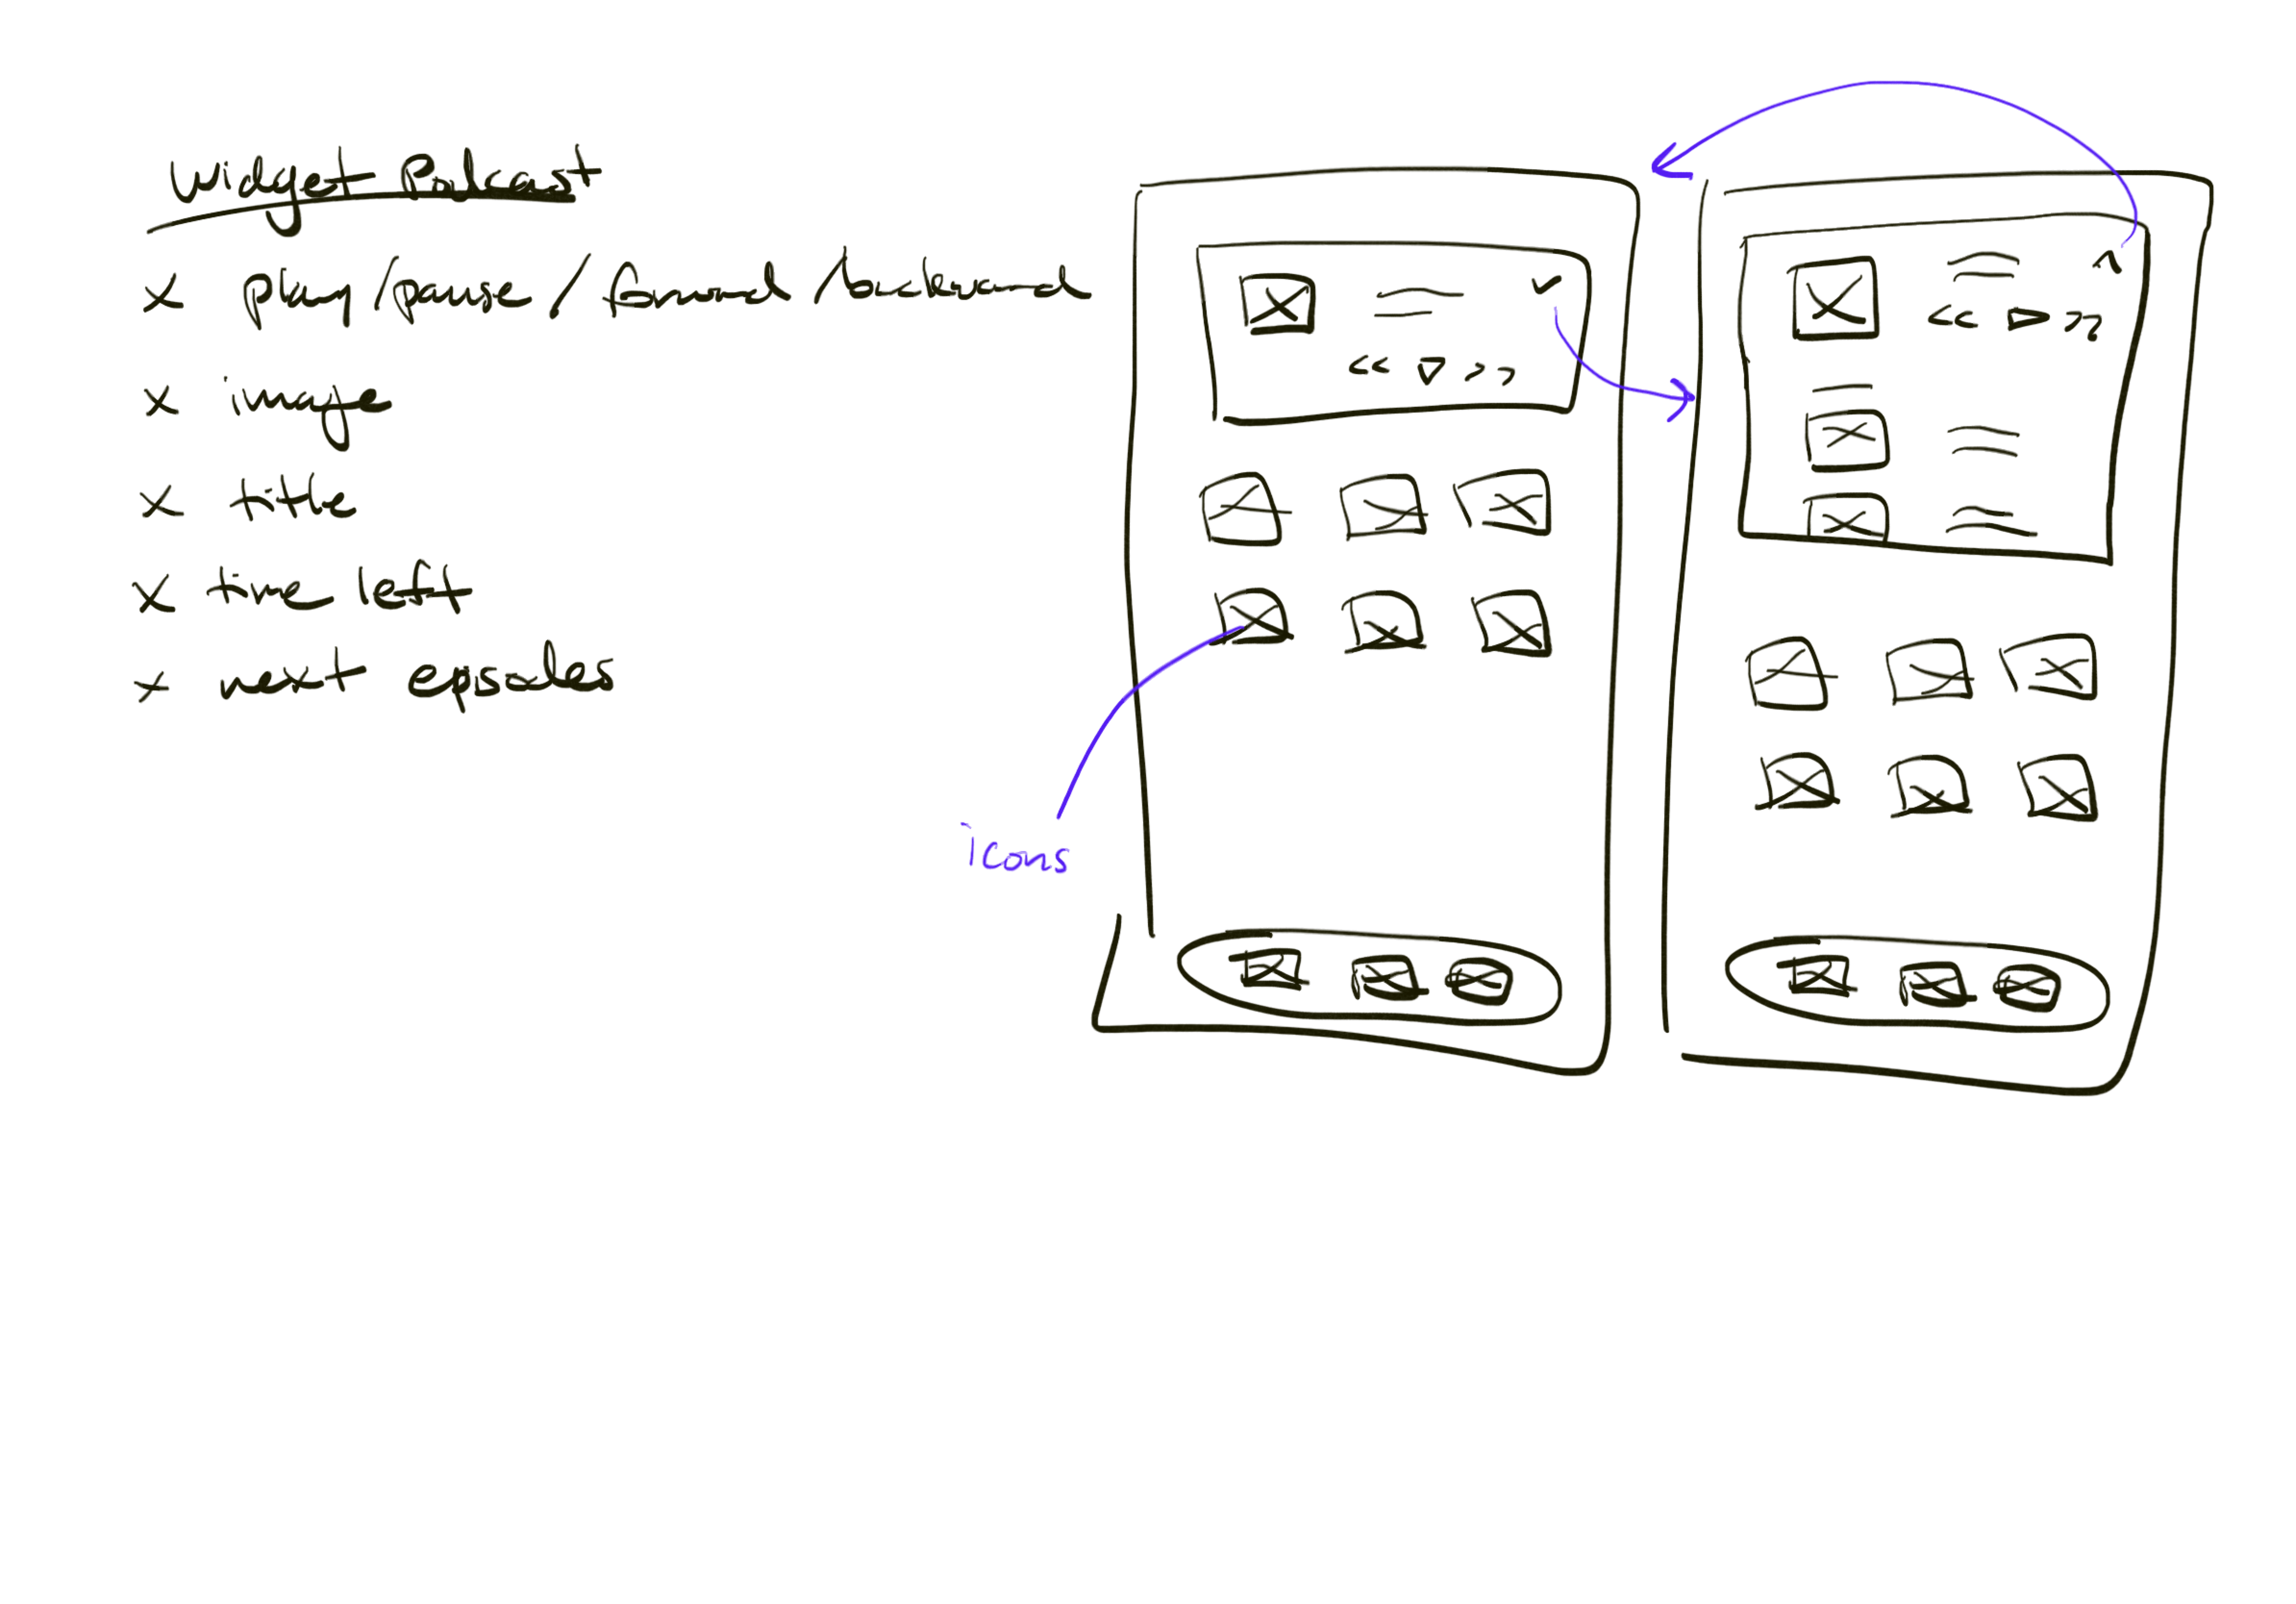 Widget Podcast
x play/pause/forward/backward
x image
x title
x time left
x next episodes
<< ▷ >>
<< ▷ >>
icons